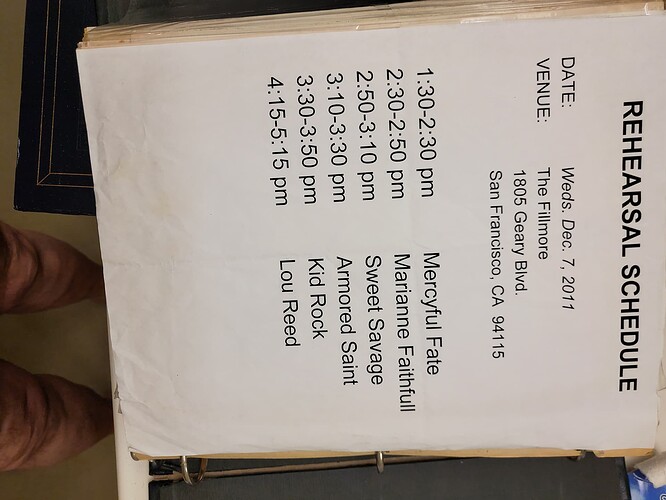 REHEARSAL SCHEDULE
DATE: Weds. Dec. 7, 2011
VENUE: The Fillmore
1805 Geary Blvd.
San Francisco, CA 94115
1:30-2:30 pm Mercyful Fate
2:30-2:50 pm Marianne Faithfull
2:50-3:10 pm Sweet Savage
3:10-3:30 pm Armored Saint
3:30-3:50 pm Kid Rock
4:15-5:15 pm Lou Reed